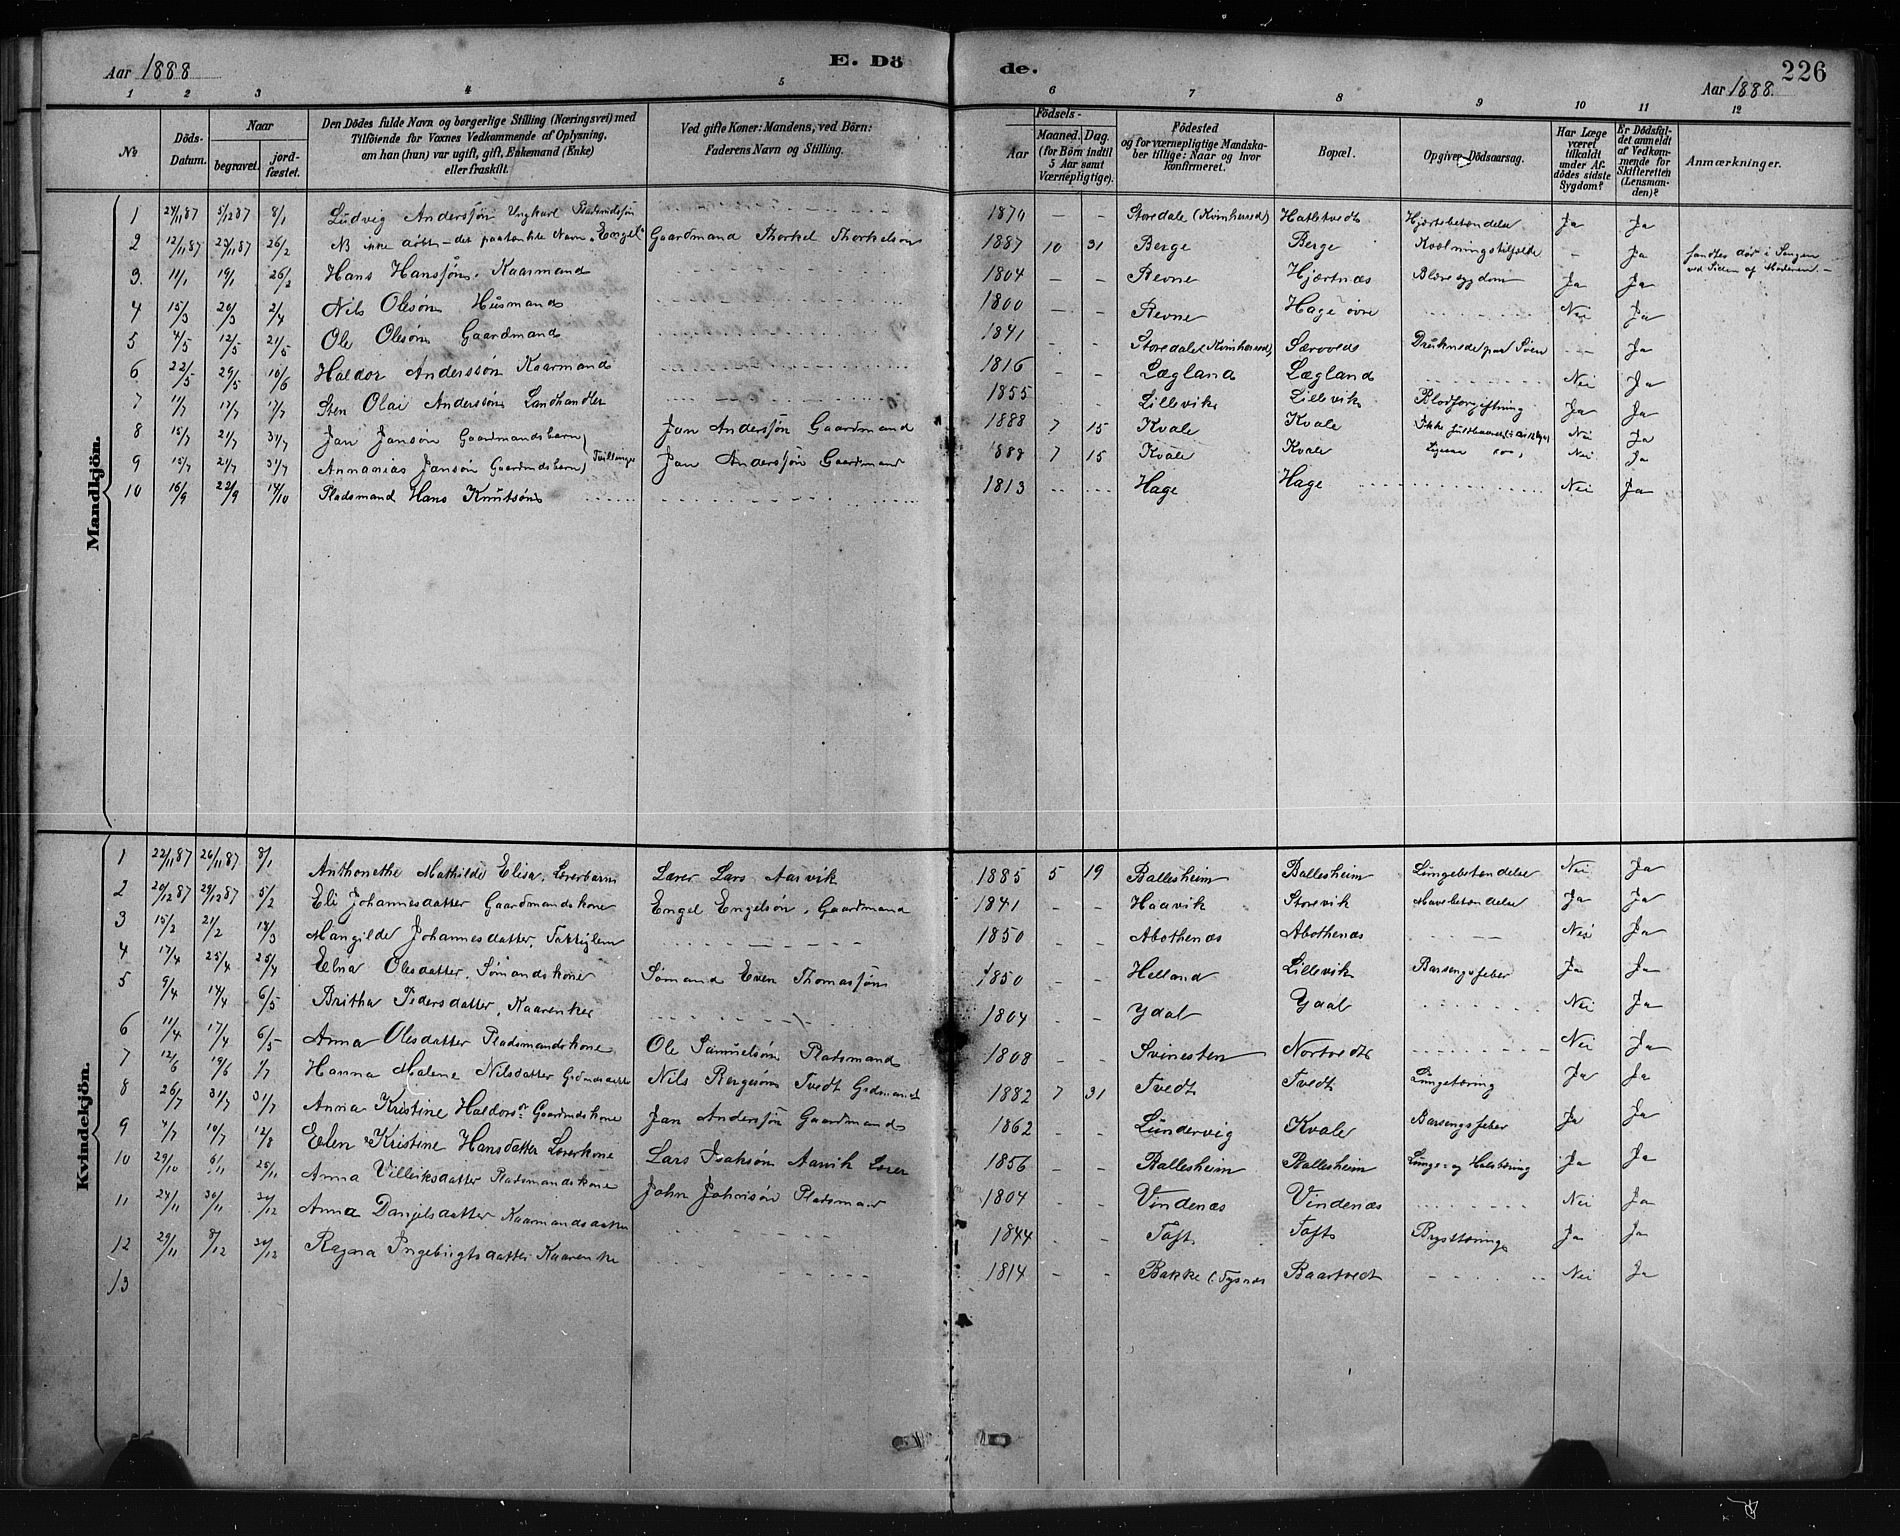 Aar 1888
E. Dö
de.
Aar 1888.
226
1 2 3 4 5 6 7 8 9 10 11 12
№
Döds-Datum.
Naar
begravet.
jord-fæstet.
Den Dödes fulde Navn og borgerlige Stilling (Næringsvei) med
Tilföiende for Voxnes Vedkommende af Oplysning,
om han (hun) var ugift, gift, Enkemand (Enke)
eller fraskilt.
Ved gifte Koner: Mandens, ved Börn:
Faderens Navn og Stilling.
Födsels-
Aar
Maaned. Dag.
(for Börn indtil
5 Aar samt
Værnepligtige).
Födested
og for værnepligtige Mandska-
ber tillige: Naar og hvor
konfirmeret.
Bopæl.
Opgiven Dödsaarsag.
Har Læge
været
tilkaldt
under Af-
dödes sidste
Sygdom?
Er Dödsfal-
det anmeldt
af Vedkom-
mende for
Skifteretten
(Lensman-
den)?
Anmærkninger.
Mandkjön.
1 24/11 87 5/12 87 8/1 Ludvig Anderssön Ungkarl Pladsmdssön 1870 – – Storedale (Kvinherred) Hatletvedt Hjertebetændelse Ja Ja
2 12/11 87 23/11 87 26/2 NB ikke döbt – det paatænkte Navn „Engel“ Gaardmand Thorkel Thorkelsen 1887 10 31 Berge Berge Kvælningstilfælde – Ja fandtes död i Sengen
ved Siden af Moderen. –
3. 11/1 19/1 26/2 Hans Hanssön. Kaarmand 1804 – – Revne Hjærtnæs Blæresygdom Ja Ja
4 15/3 20/3 2/4 Nils Olesön Husmand 1800 – – Revne Hage övre Nei Ja
5 4/5 12/5 21/5 Ole Olesön Gaardmand 1841 - - Storedale (Kvinherred) Særvold Druknede paa Söen – Ja
6 22/5 29/5 10/6 Haldor Anderssön Kaarmand 1816 - - Lægland Lægland Nei Ja
7 11/7 17/7 17/7 Sten Olai Anderssön Landhandler 1855 - - Lillevik Lillevik Blodforgiftning Ja Ja
8 15/7 21/7 31/7 Jan Jansön Gaardmandsbarn Jan Anderssön Gaardmand 1888 7 15 Kvale Kvale Ikke fuldbaaret Nei Ja
9 15/7 21/7 31/7 Annanias Jansön Gaardmdsbarn Tvillinger Jan Anderssön Gaardmand 1888 7 15 Kvale Kvale Ligesaa Nei Ja
10 16/9 22/9 14/10 Pladsmand Hans Knutsön 1813 Hage Hage Nei Ja
Kvindekjön.
1 22/11 87 26/11 87 8/1 Anthonethe Mathilde Elisa. Lærerbarn Lærer Lars Aarvik 1885 5 19 Ballesheim Ballesheim Lungebetændelse Nei Ja
2 20/12 87 29/12 87 5/2 Eli Johannesdatter Gaardmandskone Engel Engelsön. Gaardmand 1841 - - Haavik Storevik Mavebetændelse Ja Ja
3 15/2 21/2 18/3 Mangilde Johannesdatter. 1850 - - Abothenæs Abothenæs Nei Ja
4 17/4 25/4 25/4 Elna Olesdatter. Sömandskone Sömand Even Thomassön 1850 - - Helland Lillevik Barsengsfeber Ja Ja
5 9/4 14/4 6/5 Britha Pedersdatter, Kaarenke 1804 - - Ydal Ydal Nei Ja
6 11/4 17/4 6/5 Anna Olesdatter Pladsmandskone Ole Samuelsön Pladsmand 1808 - - Svinesten Nortvedt Nei Ja
7 12/6 19/6 1/7 Hanna Malene Nilsdatter Nils Bergesön Tvedt 1882 7 31 Tvedt Tvedt Lungetæring Ja Ja
8 26/7 31/7 31/7 Anna Kristine Haldorsdr Gaardmdskone Jan Anderssön Gaardmand 1862 - - Lundervig Kvale Barsengsfeber Ja Ja
9 4/7 10/7 12/8 Elen Kristine Hansdatter Lærerkone Lars Isaksön Aarvik Lærer 1856 - - Ballesheim Ballesheim Lunge- og Halstæring Ja Ja
10 29/10 6/11 25/11 Anna Villeiksdatter Pladsmandskone John Johnsön Pladsmand 1804 - - Vindenæs Vindenæs Nei Ja
11 24/11 30/11 30/12 Anna Danjelsdatter Kaarmandsdatter 1844 - - Toft Toft Brysttæring Ja Ja
12 29/11 8/12 30/12 Ragna Ingebrigtsdatter Kaarenke 1814 - - Bakke (Tysnæs Baartvedt Nei Ja
13